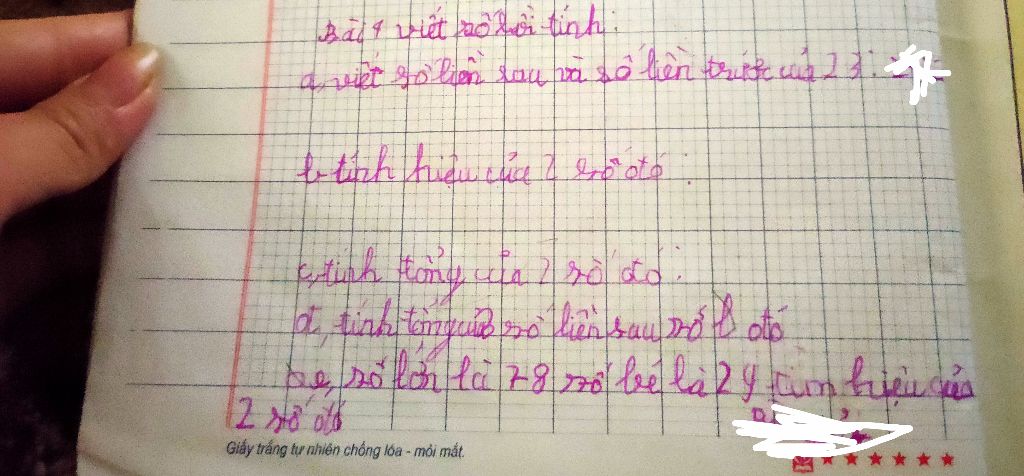 Bài 4 viết số rồi tính:
a, viết số liền sau và số liền trước của 23:
b, tính hiệu của 2 số đó:
c, tính tổng của 2 số đó:
d, tính tổng của số liền sau số đó
e, số lớn là 78 số bé là 24 tìm hiệu của
2 số đó
Giấy trắng tự nhiên chống lóa - mỏi mắt.